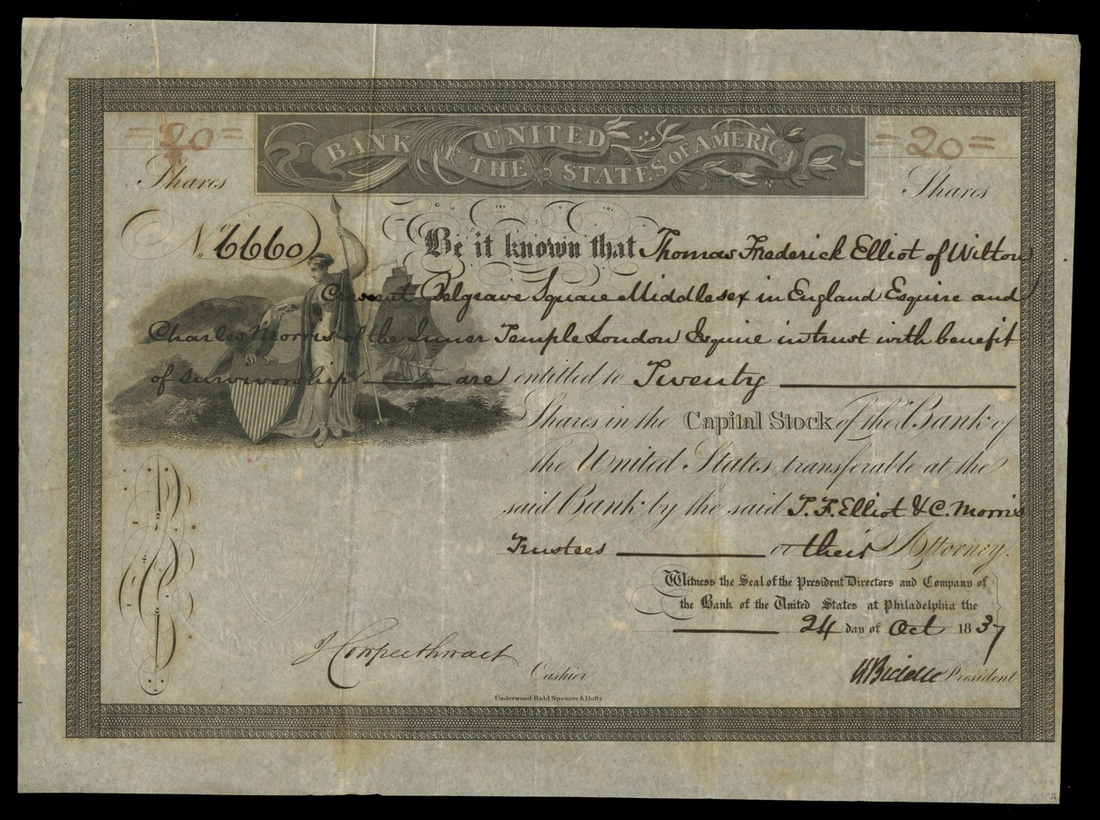 =20= BANK OF THE UNITED STATES OF AMERICA =20=
Shares Shares
No. 6660 Be it known that Thomas Frederick Elliot of Wilton
Crescent Belgrave Square Middlesex in England Esquire and
Charles Morris of the Inner Temple London Esquire in trust with benefit
of survivorship are entitled to Twenty
Shares in the Capital Stock of the Bank of
the United States transferable at the
said Bank by the said T. F. Elliot & C. Morris
Trustees or their Attorney.
Witness the Seal of the President Directors and Company of
the Bank of the United States at Philadelphia the
24 day of Oct 1837
J Cowperthwait Cashier N Biddle President
Underwood Bald Spencer & Hufty